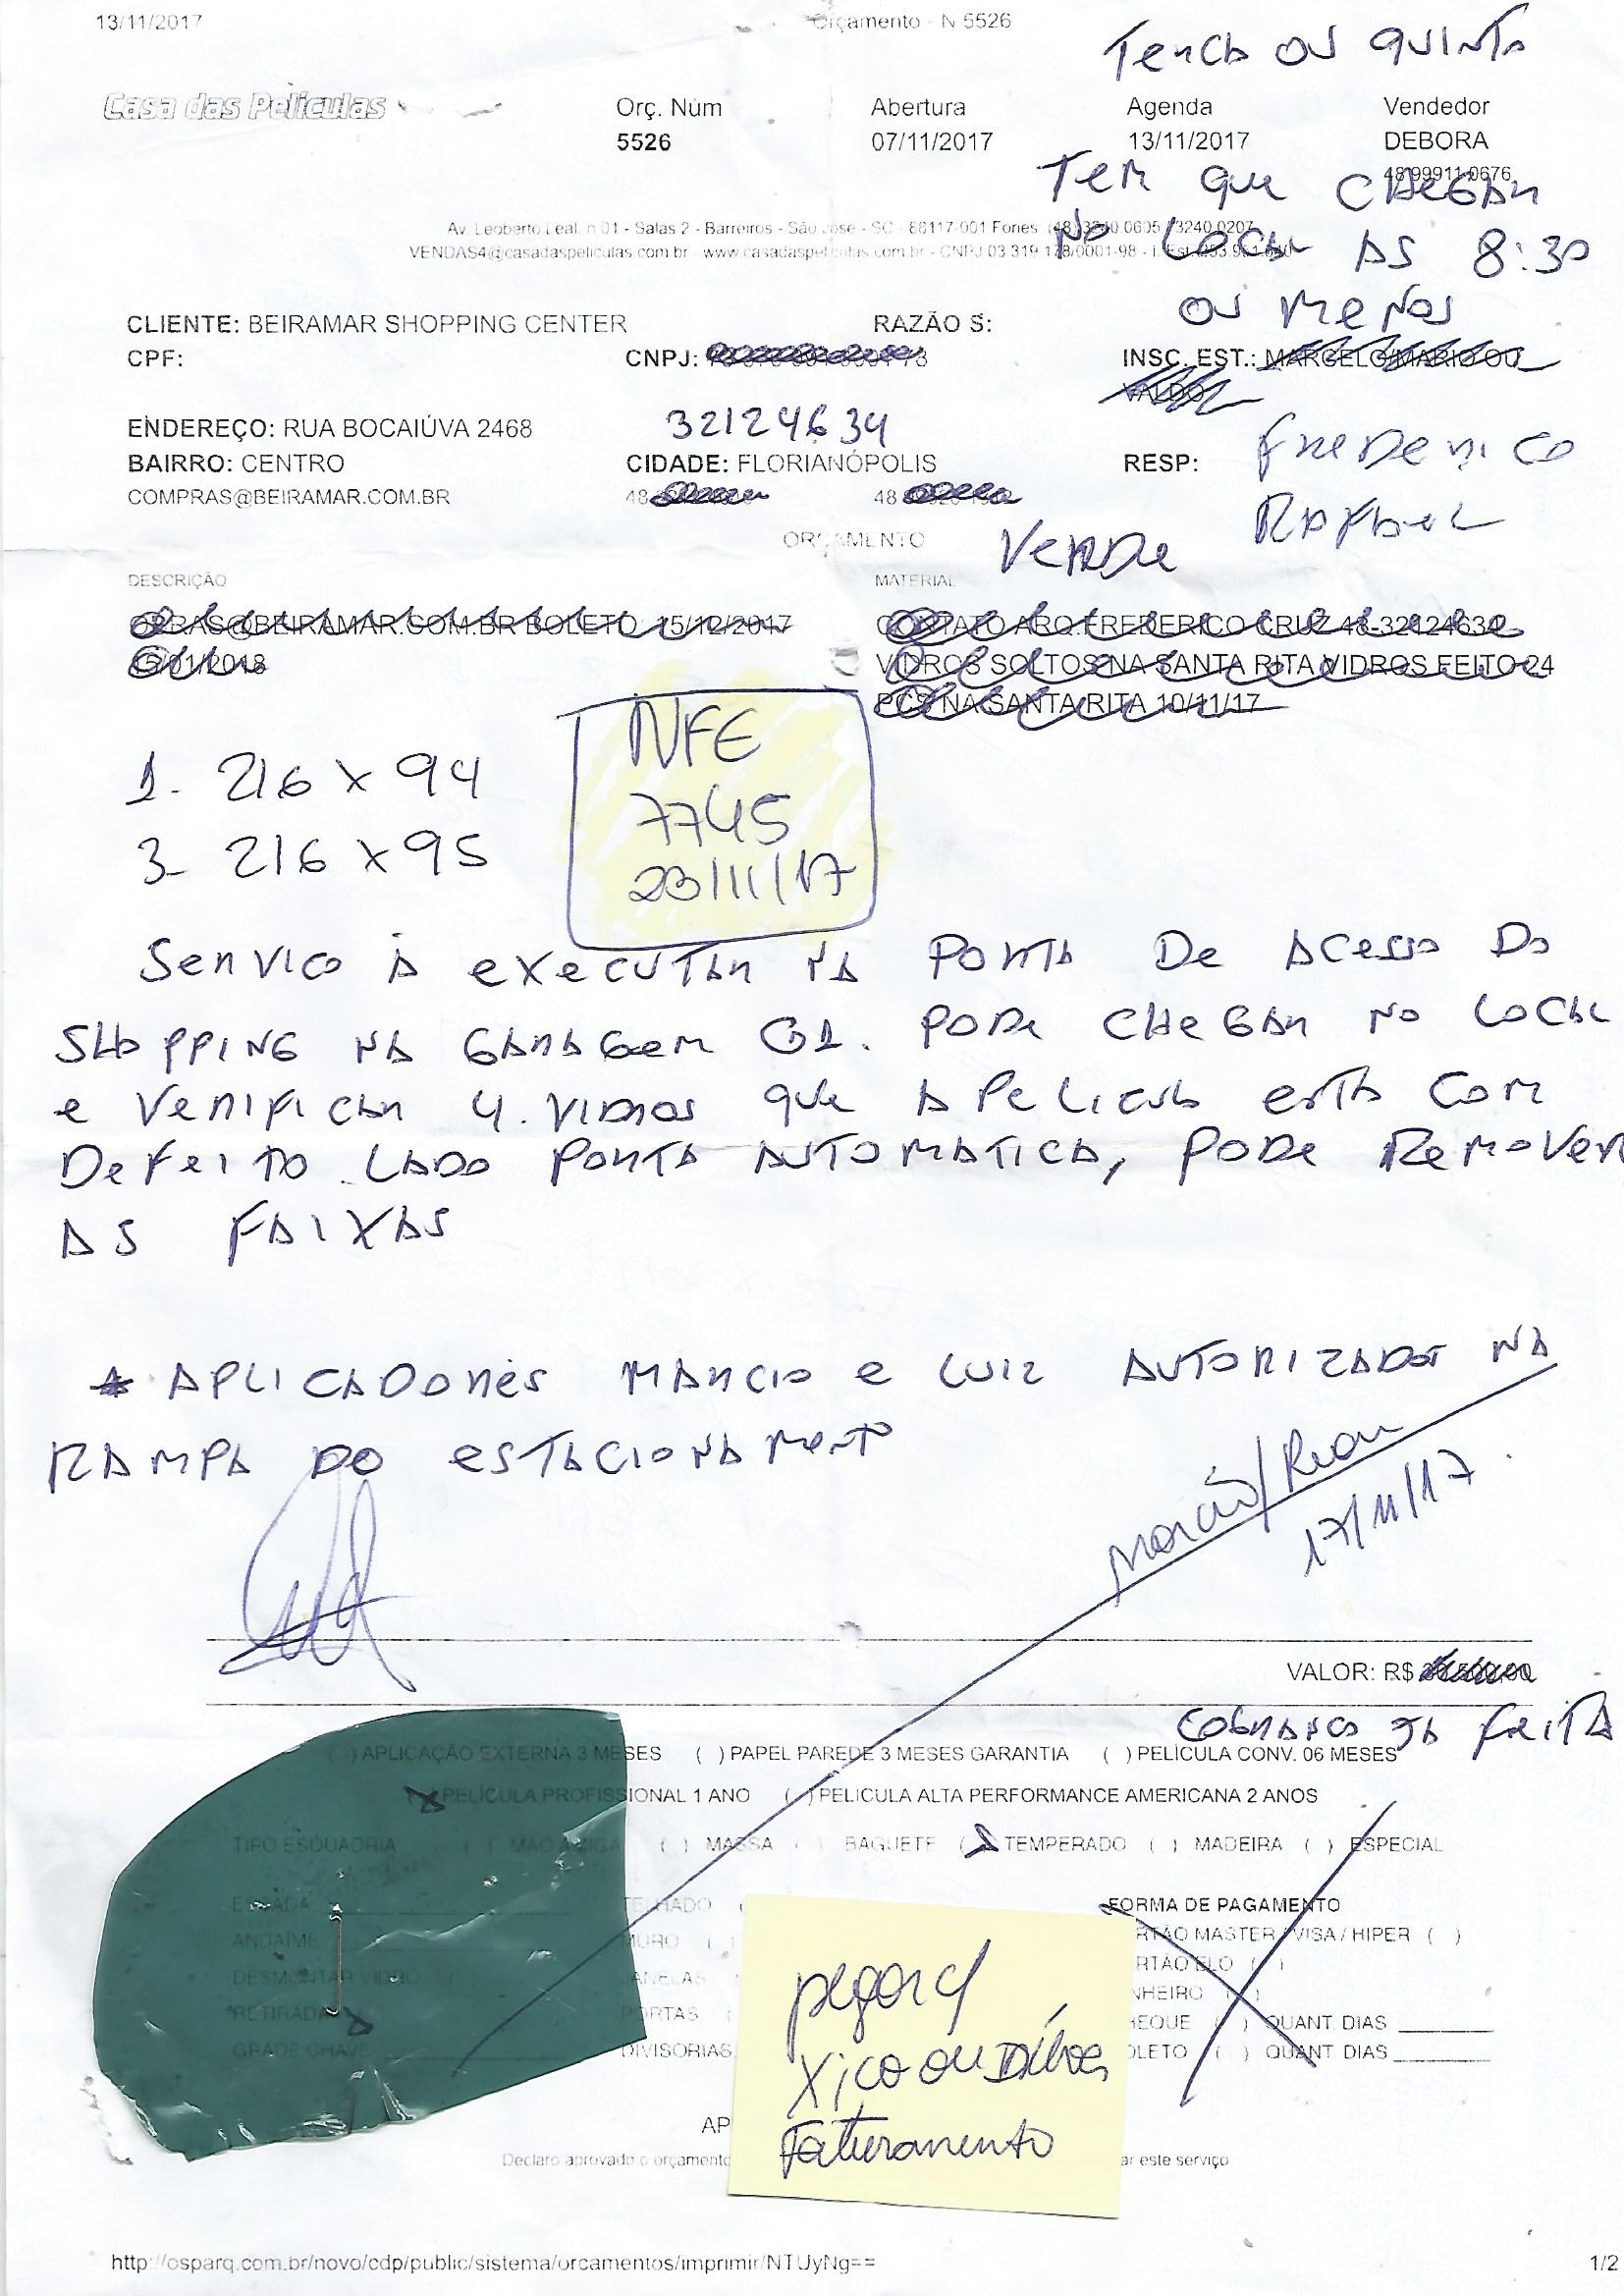 13/11/2017 Orçamento - N 5526
TERCA OU QUINTA
Casa das Películas Orç. Núm Abertura Agenda Vendedor
5526 07/11/2017 13/11/2017 DEBORA
48 99911 0676
TEM que CHEGAR
Av. Leoberto Leal, n 01 - Salas 2 - Barreiros - São José - SC - 88117-001 Fones (48) 3240 0605 / 3240 0207
NO LOCAL AS 8:30
VENDAS4@casadaspeliculas.com.br - www.casadaspeliculas.com.br - CNPJ 03 319 178/0001-98
OU MENOS
CLIENTE: BEIRAMAR SHOPPING CENTER RAZÃO S:
CPF: CNPJ: INSC. EST.: MARCELO/MARIO OU
VALDO
ENDEREÇO: RUA BOCAIÚVA 2468 32124634
BAIRRO: CENTRO CIDADE: FLORIANÓPOLIS RESP: FREDERICO
COMPRAS@BEIRAMAR.COM.BR 48 48 RAFAEL
ORÇAMENTO VERDE
DESCRIÇÃO MATERIAL
OBRAS@BEIRAMAR.COM.BR BOLETO 15/12/2017 CONTATO ARQ.FREDERICO CRUZ 48-32124634
15/01/2018 VIDROS SOLTOS NA SANTA RITA VIDROS FEITO 24
PCS NA SANTA RITA 10/11/17
NFE
7745
23/11/17
1. 216 x 94
3- 216 x 95
SERVICO À EXECUTAR NA PORTA DE ACESSO DO
SHOPPING NA GARAGEM G1. PODE CHEGAR NO LOCAL
e VERIFICAR 4. VIDROS que A PELICULA ESTA COM
DEFEITO. LADO PORTA AUTOMATICA, PODE REMOVER
AS FAIXAS
* APLICADORES MARCIO e LUIZ AUTORIZADOS NA
RAMPA DO ESTACIONAMENTO
Marcio/Rean
17/11/17.
VALOR: R$
COBRANCA JA FEITA
( ) APLICAÇÃO EXTERNA 3 MESES ( ) PAPEL PAREDE 3 MESES GARANTIA ( ) PELÍCULA CONV. 06 MESES
(X) PELÍCULA PROFISSIONAL 1 ANO ( ) PELICULA ALTA PERFORMANCE AMERICANA 2 ANOS
TIPO ESQUADRIA ( ) MÃO AMIGA ( ) MASSA ( ) BAGUETE (X) TEMPERADO ( ) MADEIRA ( ) ESPECIAL
ESCADA TELHADO ( FORMA DE PAGAMENTO
ANDAIME MURO ( ) RTÃO MASTER / VISA / HIPER ( )
DESMONTAR VIDRO ANELAS RTÃO ELO ( )
RETIRADA X ORTAS ( NHEIRO ( )
GRADE CHAVE DIVISORIAS HEQUE ( ) QUANT. DIAS
OLETO ( ) QUANT. DIAS
pegar c/
Xico ou
Faturamento
AP
Declaro aprovado o orçamento ar este serviço
http://osparq.com.br/novo/cdp/public/sistema/orcamentos/imprimir/NTUyNg== 1/2